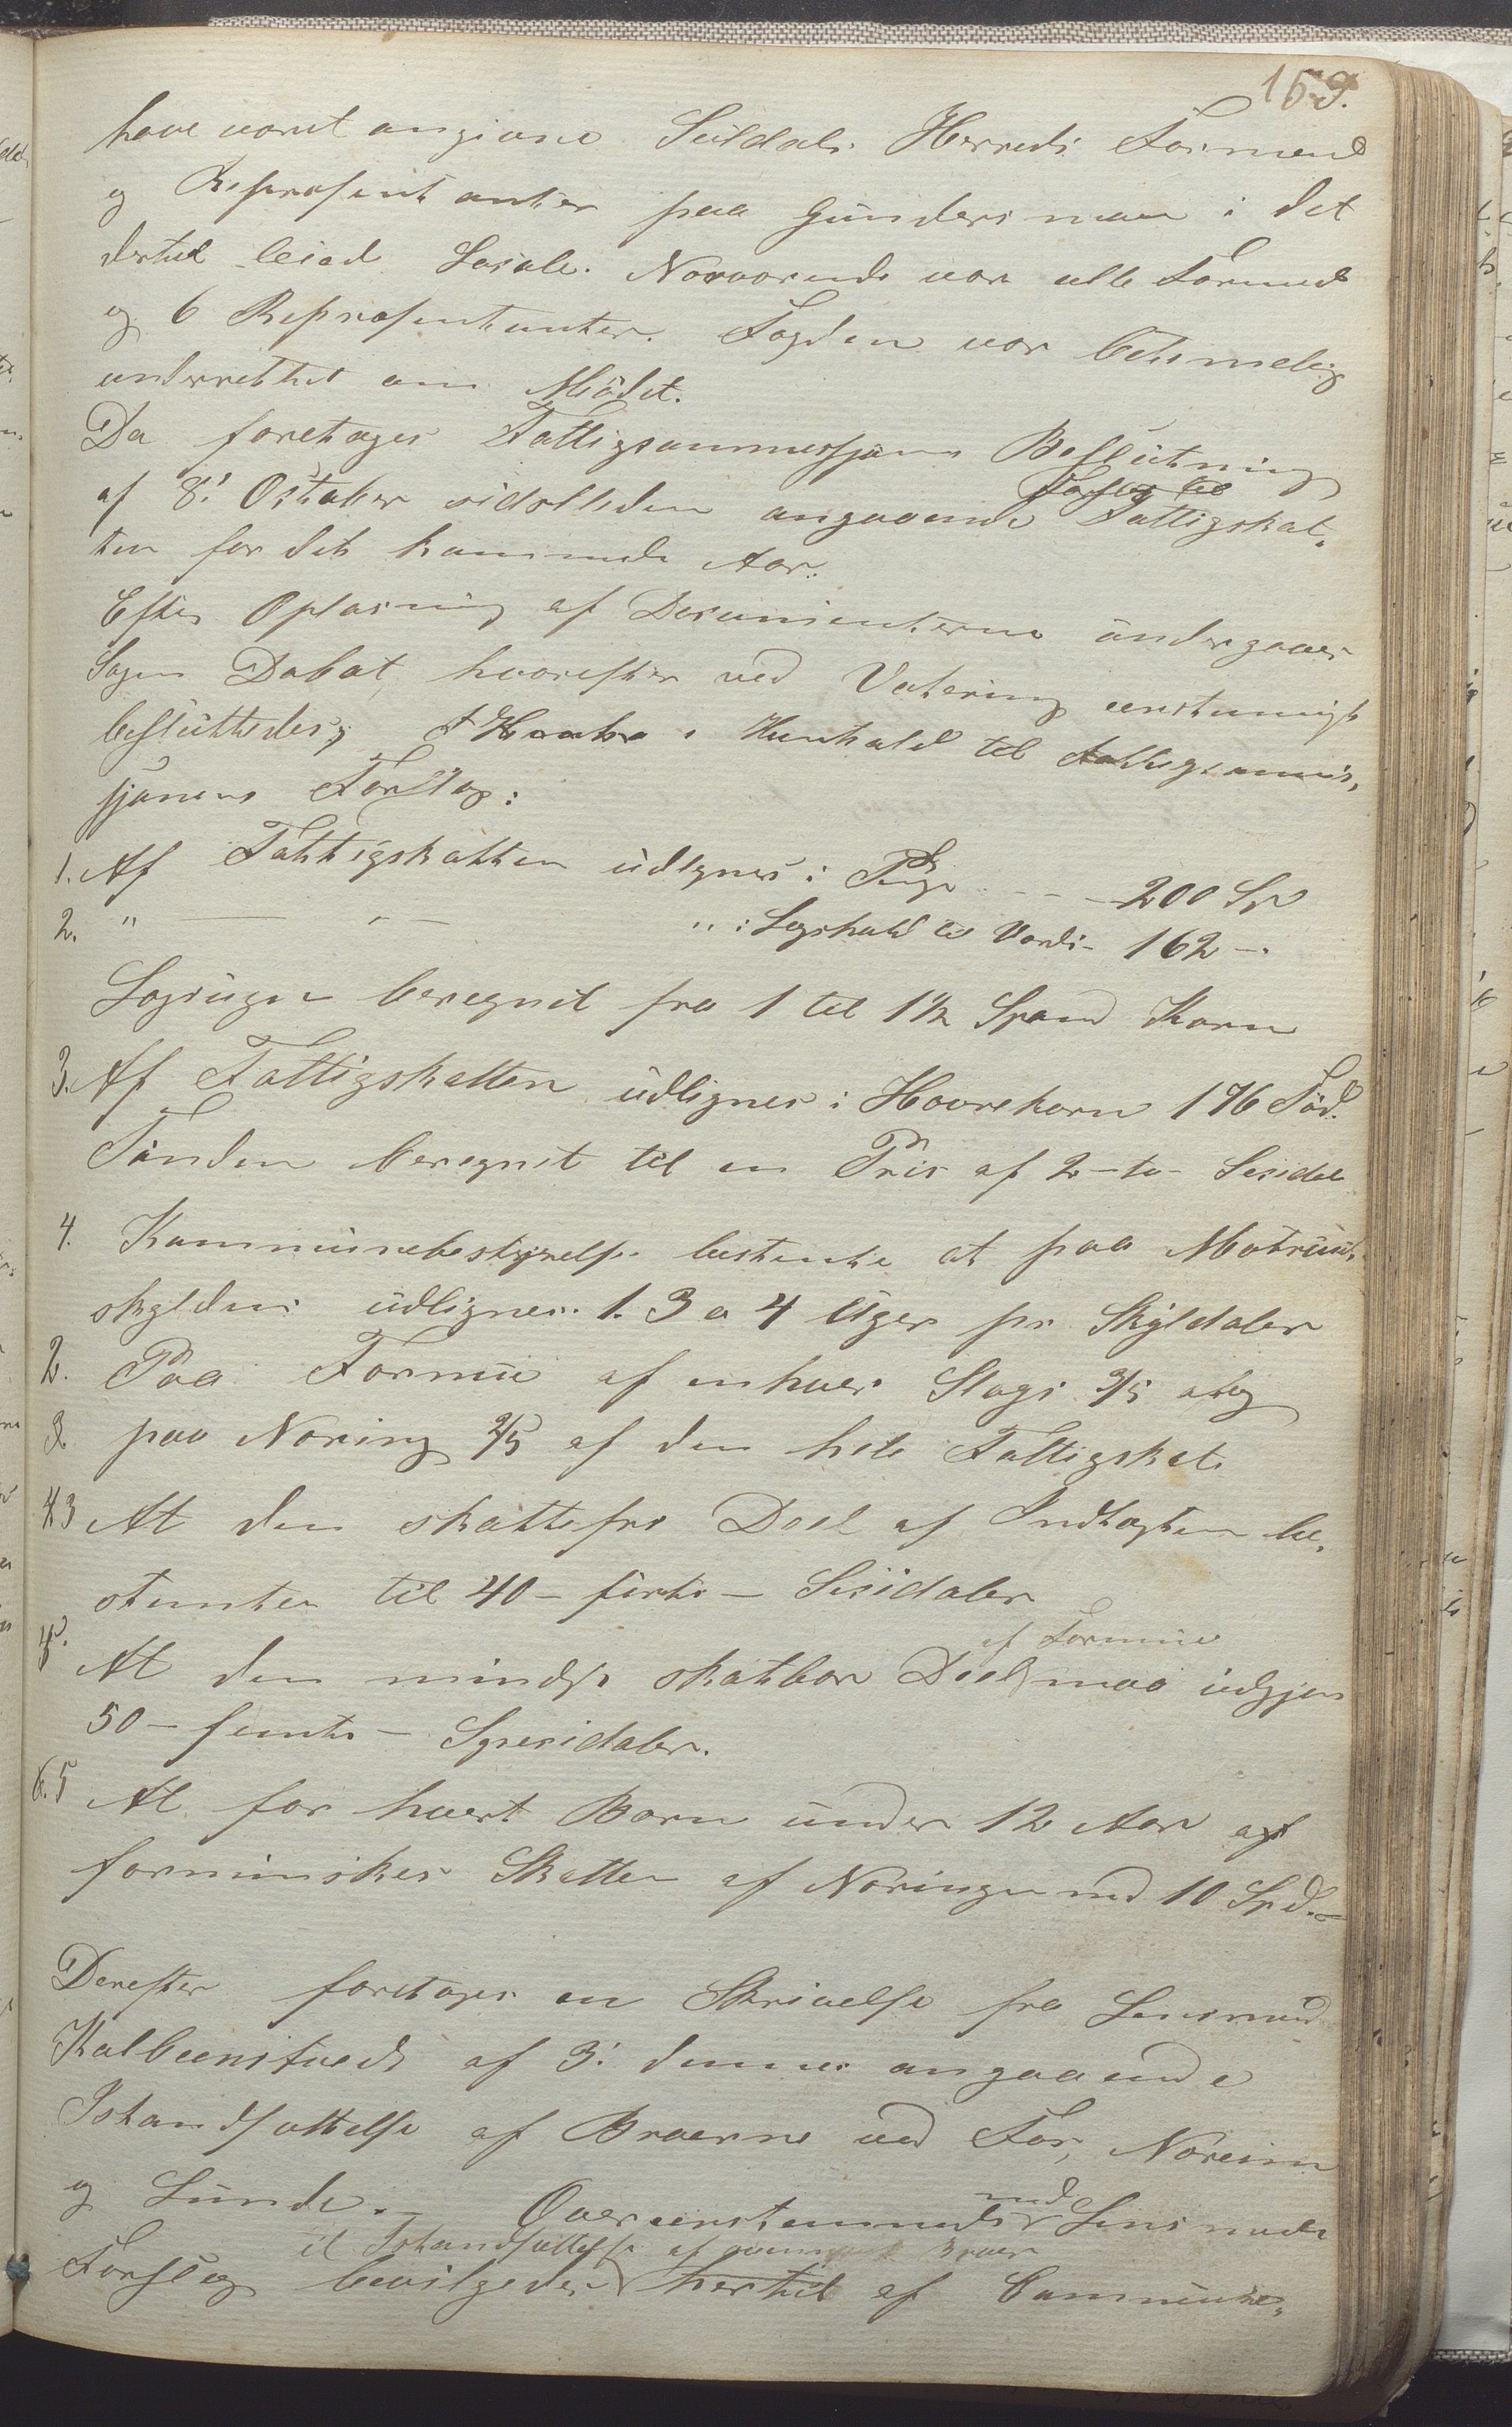 159.
have været angivne Suldals Herreds Formænd
og Repræsentanter paa Gundersmoe i det
dertil leiede Locale. Nærværende var alle Formænd
og 6 Repræsentanter. Fogden var betimelig
underrettet om Mødet.
Da foretoges Fattigcommissjonens Beslutning
Forslag til
af 8' October sidstleden angaaende Fattigskat,
ten for det kommende Aar.
Efter Oplæsning af Documenterne undergaaer
Sagen Debat, hvorefter ved Votering eenstemmigt
besluttedes, i Henhold til Fattigcommis,
sjonens Forslag:
1. Af Fattigskatten udlignes i Penge - - - 200 Spd
2. " — " — " i Lægshold til Værdi - 162 -.
Lægsugen beregnet fra 1 til 1 1/2 Spand Korn
3. Af Fattigskatten udlignes i Havrekorn 176 Tød.
Tønden beregnet til en Pris af 2 - to - Spesidal
4. Kommunebestyrelse bestemte at paa Matricul,
skylden udlignes 1. 3 a 4 Uger pr Skyldaler
2. Paa Formue af enhver Slags 3/5 og
3 paa Næring 2/5 af den hele Fattigskat.
4.3 At den skattefri Deel af Indtægten be,
stemtes til 40 - førti - Spesidaler
af Formue
4. At den mindste skatbare Deel maa udgjøre
50 - femti - Spesidaler.
6.5 At for hvert Barn under 12 Aar
forminskes Skatten af Næringen med 10 Spd.-
Derefter foretoges en Skrivelse fra Lensmand
Kalbeenstvedt af 3' dennes angaaende
Istandsættelse af Broerne ved Foss, Noreim
og Lunde. - Overeenstemmende med Lensmands
til Istandsættelse af nævnte Broer
Forslag bevilgedes hertil af Commune,